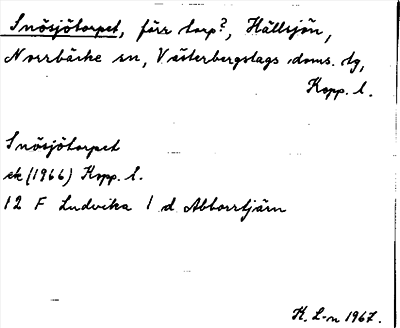 Snösjötorpet, förr torp?, Hällsjön,
Norrbärke sn, Västerbergslags doms. tg,
Kopp. l.
Snösjötorpet
ek (1966) Kopp. l.
12 F Ludvika 1 d Abborrtjärn
K. L-n 1967.